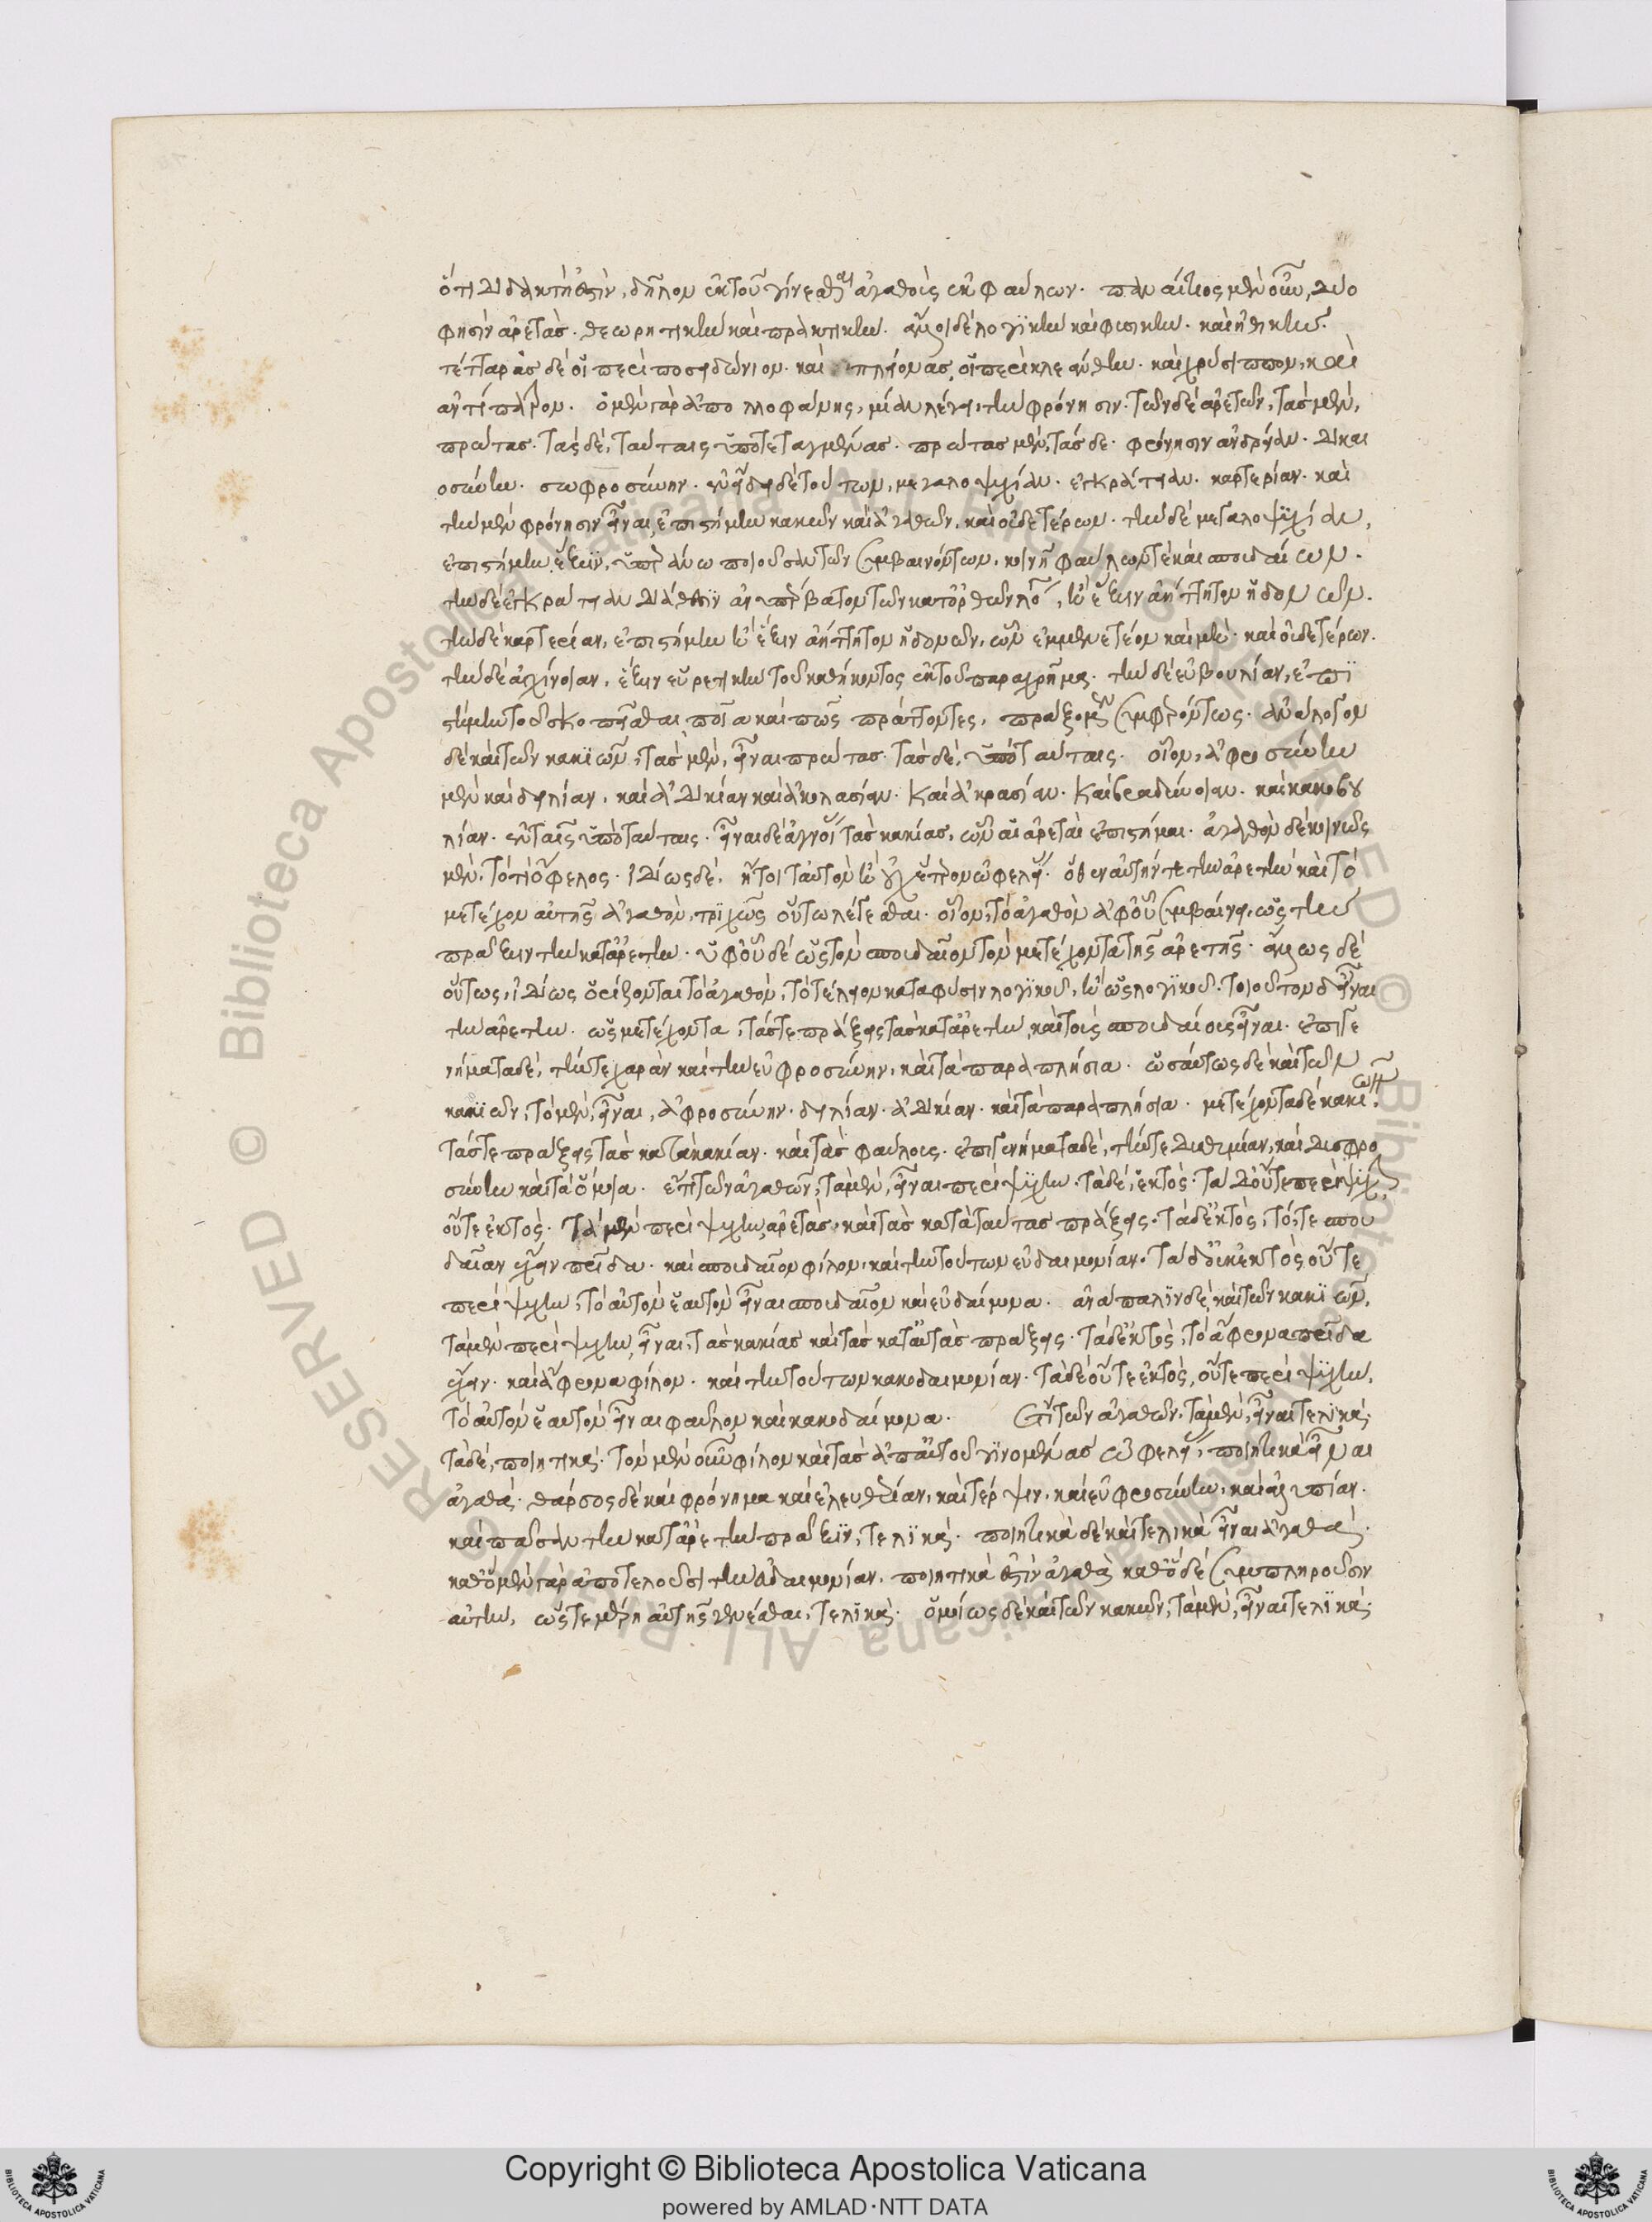 ὅτι διδακτή ἐστιν, δῆλον ἐκ τοῦ γίνεσθαι ἀγαθοὺς ἐκ φαύλων. παναίτιος μὲν οὖν, δύο
φησὶν ἀρετάς. θεωρητικὴν καὶ πρακτικήν. ἄλλοι δὲ λογικὴν καὶ φυσικήν. καὶ ἠθικήν.
τέτταρας δὲ οἱ περὶ ποσειδώνιον. καὶ πλείονας, οἱ περὶ κλεάνθην. καὶ χρύσιππον, καὶ
ἀντίπατρον. ὁ μὲν γὰρ ἀπολλοφάνης, μίαν λέγει, τὴν φρόνησιν. τῶν δὲ ἀρετῶν, τὰς μὲν,
πρώτας. τὰς δὲ, ταύταις ὑποτεταγμένας. πρώτας μὲν, τάσδε. φρόνησιν ἀνδρείαν. δικαι
οσύνην. σωφροσύνην. ἐν εἴδει δὲ τούτων, μεγαλοψυχίαν. ἐγκράτειαν. καρτερίαν. καὶ
τὴν μὲν φρόνησιν εἶναι, ἐπιστήμην κακῶν καὶ ἀγαθῶν. καὶ οὐδετέρων. τὴν δὲ μεγαλοψυχίαν,
ἐπιστήμην ἕξιν, ὑπεράνω ποιοῦσαν τῶν συμβαινόντων. κοινῇ φαύλων τὲ καὶ σπουδαίων.
τὴν δὲ ἐγκράτειαν διάθεσιν ἀνυπέρβατον τῶν κατ' ὀρθὸν λόγον, ἢ ἕξιν ἀήττητον ἡδονῶν.
τὴν δὲ καρτερίαν, ἐπιστήμην ἢ ἕξιν ἀήττητον ἡδονῶν, ὧν ἐμμενετέον καὶ μή. καὶ οὐδετέρων.
τὴν δὲ ἀγχίνοιαν. ἕξιν εὑρετικὴν τοῦ καθήκοντος ἐκ τοῦ παραχρῆμα. τὴν δὲ εὐβουλίαν, ἐπι
στήμην τοῦ σκοπεῖσθαι ποῖα καὶ πῶς πράττοντες, πράξομεν συμφερόντως. ἀνάλογον
δὲ καὶ τῶν κακιῶν, τὰς μὲν, εἶναι πρώτας. τὰς δὲ, ὑπὸ ταύταις. οἷον, ἀφροσύνην
μὲν καὶ δειλίαν. καὶ ἀδικίαν καὶ ἀκολασίαν. καὶ ἀκρασίαν. καὶ βραδύνοιαν. καὶ κακοβου
λίαν. ἐν ταῖς ὑπὸ ταύταις. εἶναι δὲ ἀγνοίας τὰς κακίας, ὧν αἱ ἀρεταὶ ἐπιστῆμαι. ἀγαθὸν δὲ κοινῶς
μὲν, τὸ τὶ ὄφελος. ἰδίως δὲ, ἤτοι ταὐτὸν ἢ οὐχ ἕτερον ὠφελείας. ὅθεν αὐτήν τε τὴν ἀρετὴν καὶ τὸ
μετέχον αὐτῆς ἀγαθὸν, τριχῶς οὕτω λέγεσθαι. οἷον, τὸ ἀγαθὸν ἀφ' οὗ συμβαίνει, ὡς τὴν
πρᾶξιν τὴν κατ' ἀρετήν. ὑφ' οὗ δὲ ὡς τὸν σπουδαῖον τὸν μετέχοντα τῆς ἀρετῆς. ἄλλως δὲ
οὕτως, ἰδίως ὁρίζονται τὸ ἀγαθὸν, τὸ τέλειον κατὰ φύσιν λογικοῦ, ἢ ὡς λογικοῦ. τοιοῦτον δ' εἶναι
τὴν ἀρετήν. ὡς μετέχοντα, τάς τε πράξεις τὰς κατ' ἀρετὴν, καὶ τοὺς σπουδαίους εἶναι. ἐπιγε
νήματα δὲ, τήν τε χαρὰν καὶ τὴν εὐφροσύνην, καὶ τὰ παραπλήσια. ὡσαύτως δὲ καὶ τῶν
κακιῶν, τὸ μὲν, εἶναι, ἀφροσύνην. δειλίαν. ἀδικίαν. καὶ τὰ παραπλήσια. μετέχοντα δὲ κακιῶν,
τάς τε πράξεις τὰς κατὰ κακίαν. καὶ τὰς φαύλους. ἐπιγενήματα δὲ, τήν τε δυσθυμίαν, καὶ δυσφρο
σύνην καὶ τὰ ὅμοια. ἔτι τῶν ἀγαθῶν, τὰ μὲν, εἶναι περὶ ψυχήν. τὰ δὲ, ἐκτός. τὰ δ' οὔτε περὶ ψυχὴν,
οὔτε ἐκτός. τὰ μὲν περὶ ψυχὴν, ἀρετὰς. καὶ τὰς κατὰ ταύτας πράξεις. τὰ δ' ἐκτὸς, τό, τε σπου
δαίαν ἔχειν πατρίδα. καὶ σπουδαῖον φίλον, καὶ τὴν τούτων εὐδαιμονίαν. τὰ δ' οὐκ ἐκτὸς οὔτε
περὶ ψυχὴν, τὸ αὐτὸν ἑαυτὸν εἶναι σπουδαῖον καὶ εὐδαίμονα. ἀνάπαλιν δὲ, καὶ τῶν κακιῶν,
τὰ μὲν περὶ ψυχὴν, εἶναι, τὰς κακίας καὶ τὰς κατ' αὐτὰς πράξεις. τὰ δ' ἐκτὸς, τὸ ἄφρονα πατρίδα
ἔχειν. καὶ ἄφρονα φίλον. καὶ τὴν τούτων κακοδαιμονίαν. τὰ δὲ οὔτε ἐκτὸς, οὔτε περὶ ψυχὴν,
τὸ αὐτὸν ἑαυτὸν εἶναι φαῦλον καὶ κακοδαίμονα. ἔτι τῶν ἀγαθῶν, τὰ μὲν, εἶναι τελικὰ,
τὰ δὲ, ποιητικά. τὸν μὲν οὖν φίλον καὶ τὰς ἀπ' αὐτοῦ γινομένας ὠφελείας, ποιητικὰ εἶναι
ἀγαθά. θάρσος δὲ καὶ φρόνημα καὶ ἐλευθερίαν, καὶ τέρψιν, καὶ εὐφροσύνην, καὶ ἀλυπίαν.
καὶ πᾶσαν τὴν κατ' ἀρετὴν πρᾶξιν, τελικά. ποιητικὰ δὲ καὶ τελικὰ εἶναι ἀγαθά.
καθ' ὃ μὲν γὰρ ἀποτελοῦσι τὴν εὐδαιμονίαν, ποιητικά ἐστιν ἀγαθὰ καθ' ὃ δὲ συμπληροῦσιν
αὐτὴν, ὥστε μέρη αὐτῆς γενέσθαι, τελικά. ὁμοίως δὲ καὶ τῶν κακῶν, τὰ μὲν, εἶναι τελικὰ,
Copyright © Biblioteca Apostolica Vaticana
powered by AMLAD·NTT DATA